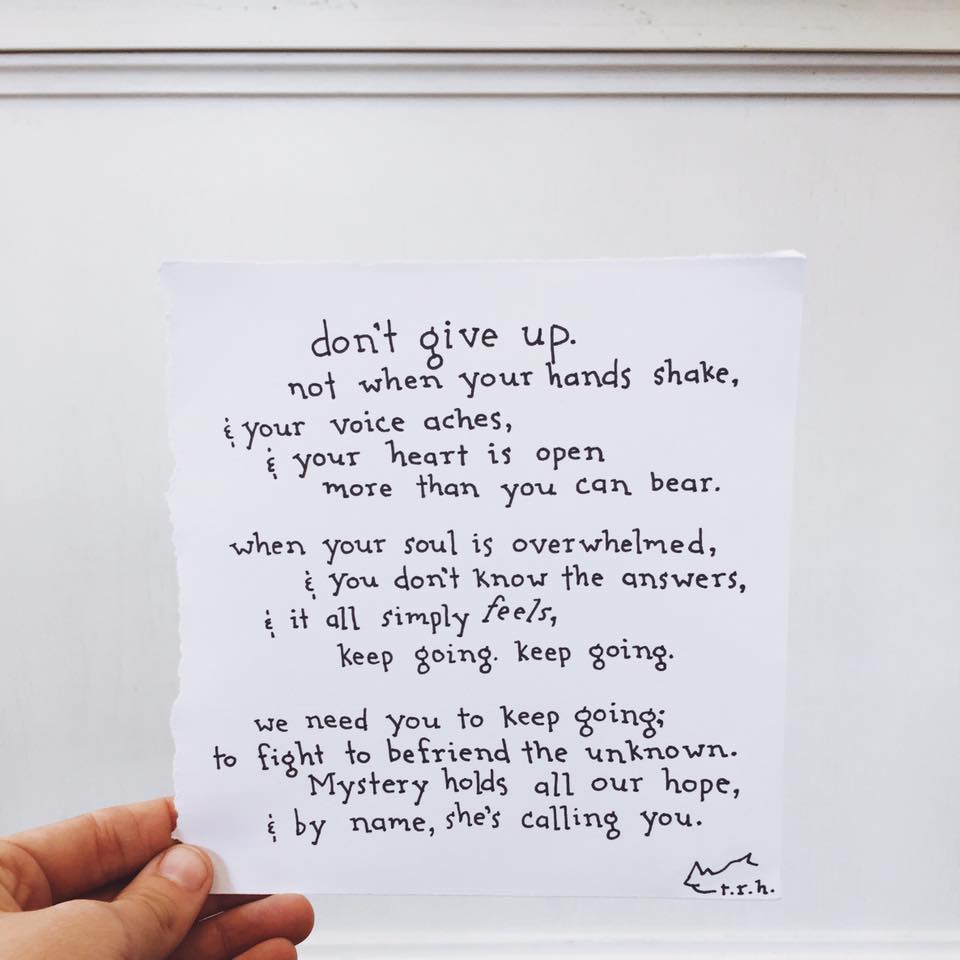 don't give up.
not when your hands shake,
& your voice aches,
& your heart is open
more than you can bear.
when your soul is overwhelmed,
& you don't know the answers,
& it all simply feels,
keep going. keep going.
we need you to keep going;
to fight to befriend the unknown.
Mystery holds all our hope,
& by name, she's calling you.
t.r.h.